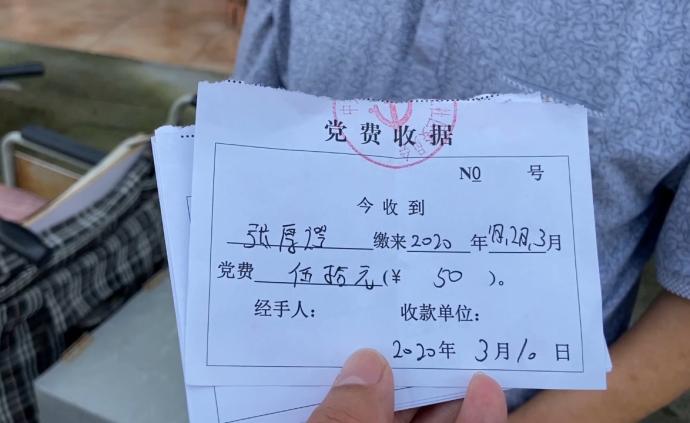 党费收据
N0 号
今收到
张厚 缴来2020年1月,2月,3月
党费 伍拾元(¥ 50 )。
经手人: 收款单位:
2020年 3月10日